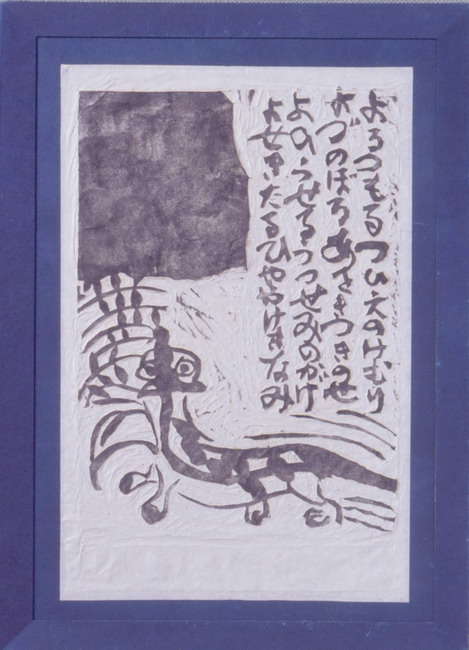 よるつもるつひえのけむり
のぼるあさきつきのせ
よのうせるうつせみのかげ
よせきたるひややけきなみ